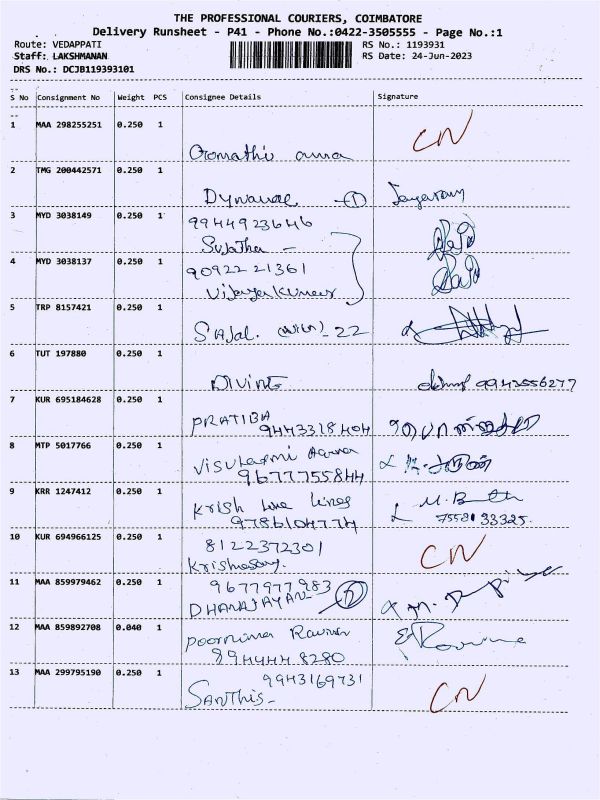 THE PROFESSIONAL COURIERS, COIMBATORE
Delivery Runsheet - P41 - Phone No.:0422-3505555 - Page No.:1
Route: VEDAPPATI RS No.: 1193931
Staff: LAKSHMANAN RS Date: 24-Jun-2023
DRS No.: DCJB119393101
S No Consignment No Weight PCS Consignee Details Signature
1 MAA 298255251 0.250 1
CN
Gomathi amma
2 TMG 200442571 0.250 1
Dynawae Jayaram
3 MYD 3038149 0.250 1 9944923646
Sujatha -
4 MYD 3038137 0.250 1 9092221361
Vijayakumar
5 TRP 8157421 0.250 1
Sajal. 22
6 TUT 197880 0.250 1
DIVINE 9943556277
7 KUR 695184628 0.250 1
PRATIBA
9443318404
8 MTP 5017766 0.250 1
Visulaxmi
9677755844
9 KRR 1247412 0.250 1
Krish
9786104774 7558133325
10 KUR 694966125 0.250 1 8122372301
CN
11 MAA 859979462 0.250 1 9677977983
DHANAJAYAN
12 MAA 859892708 0.040 1
Poornima
9944448280
13 MAA 299795190 0.250 1 9943169731
CN
Santhis-